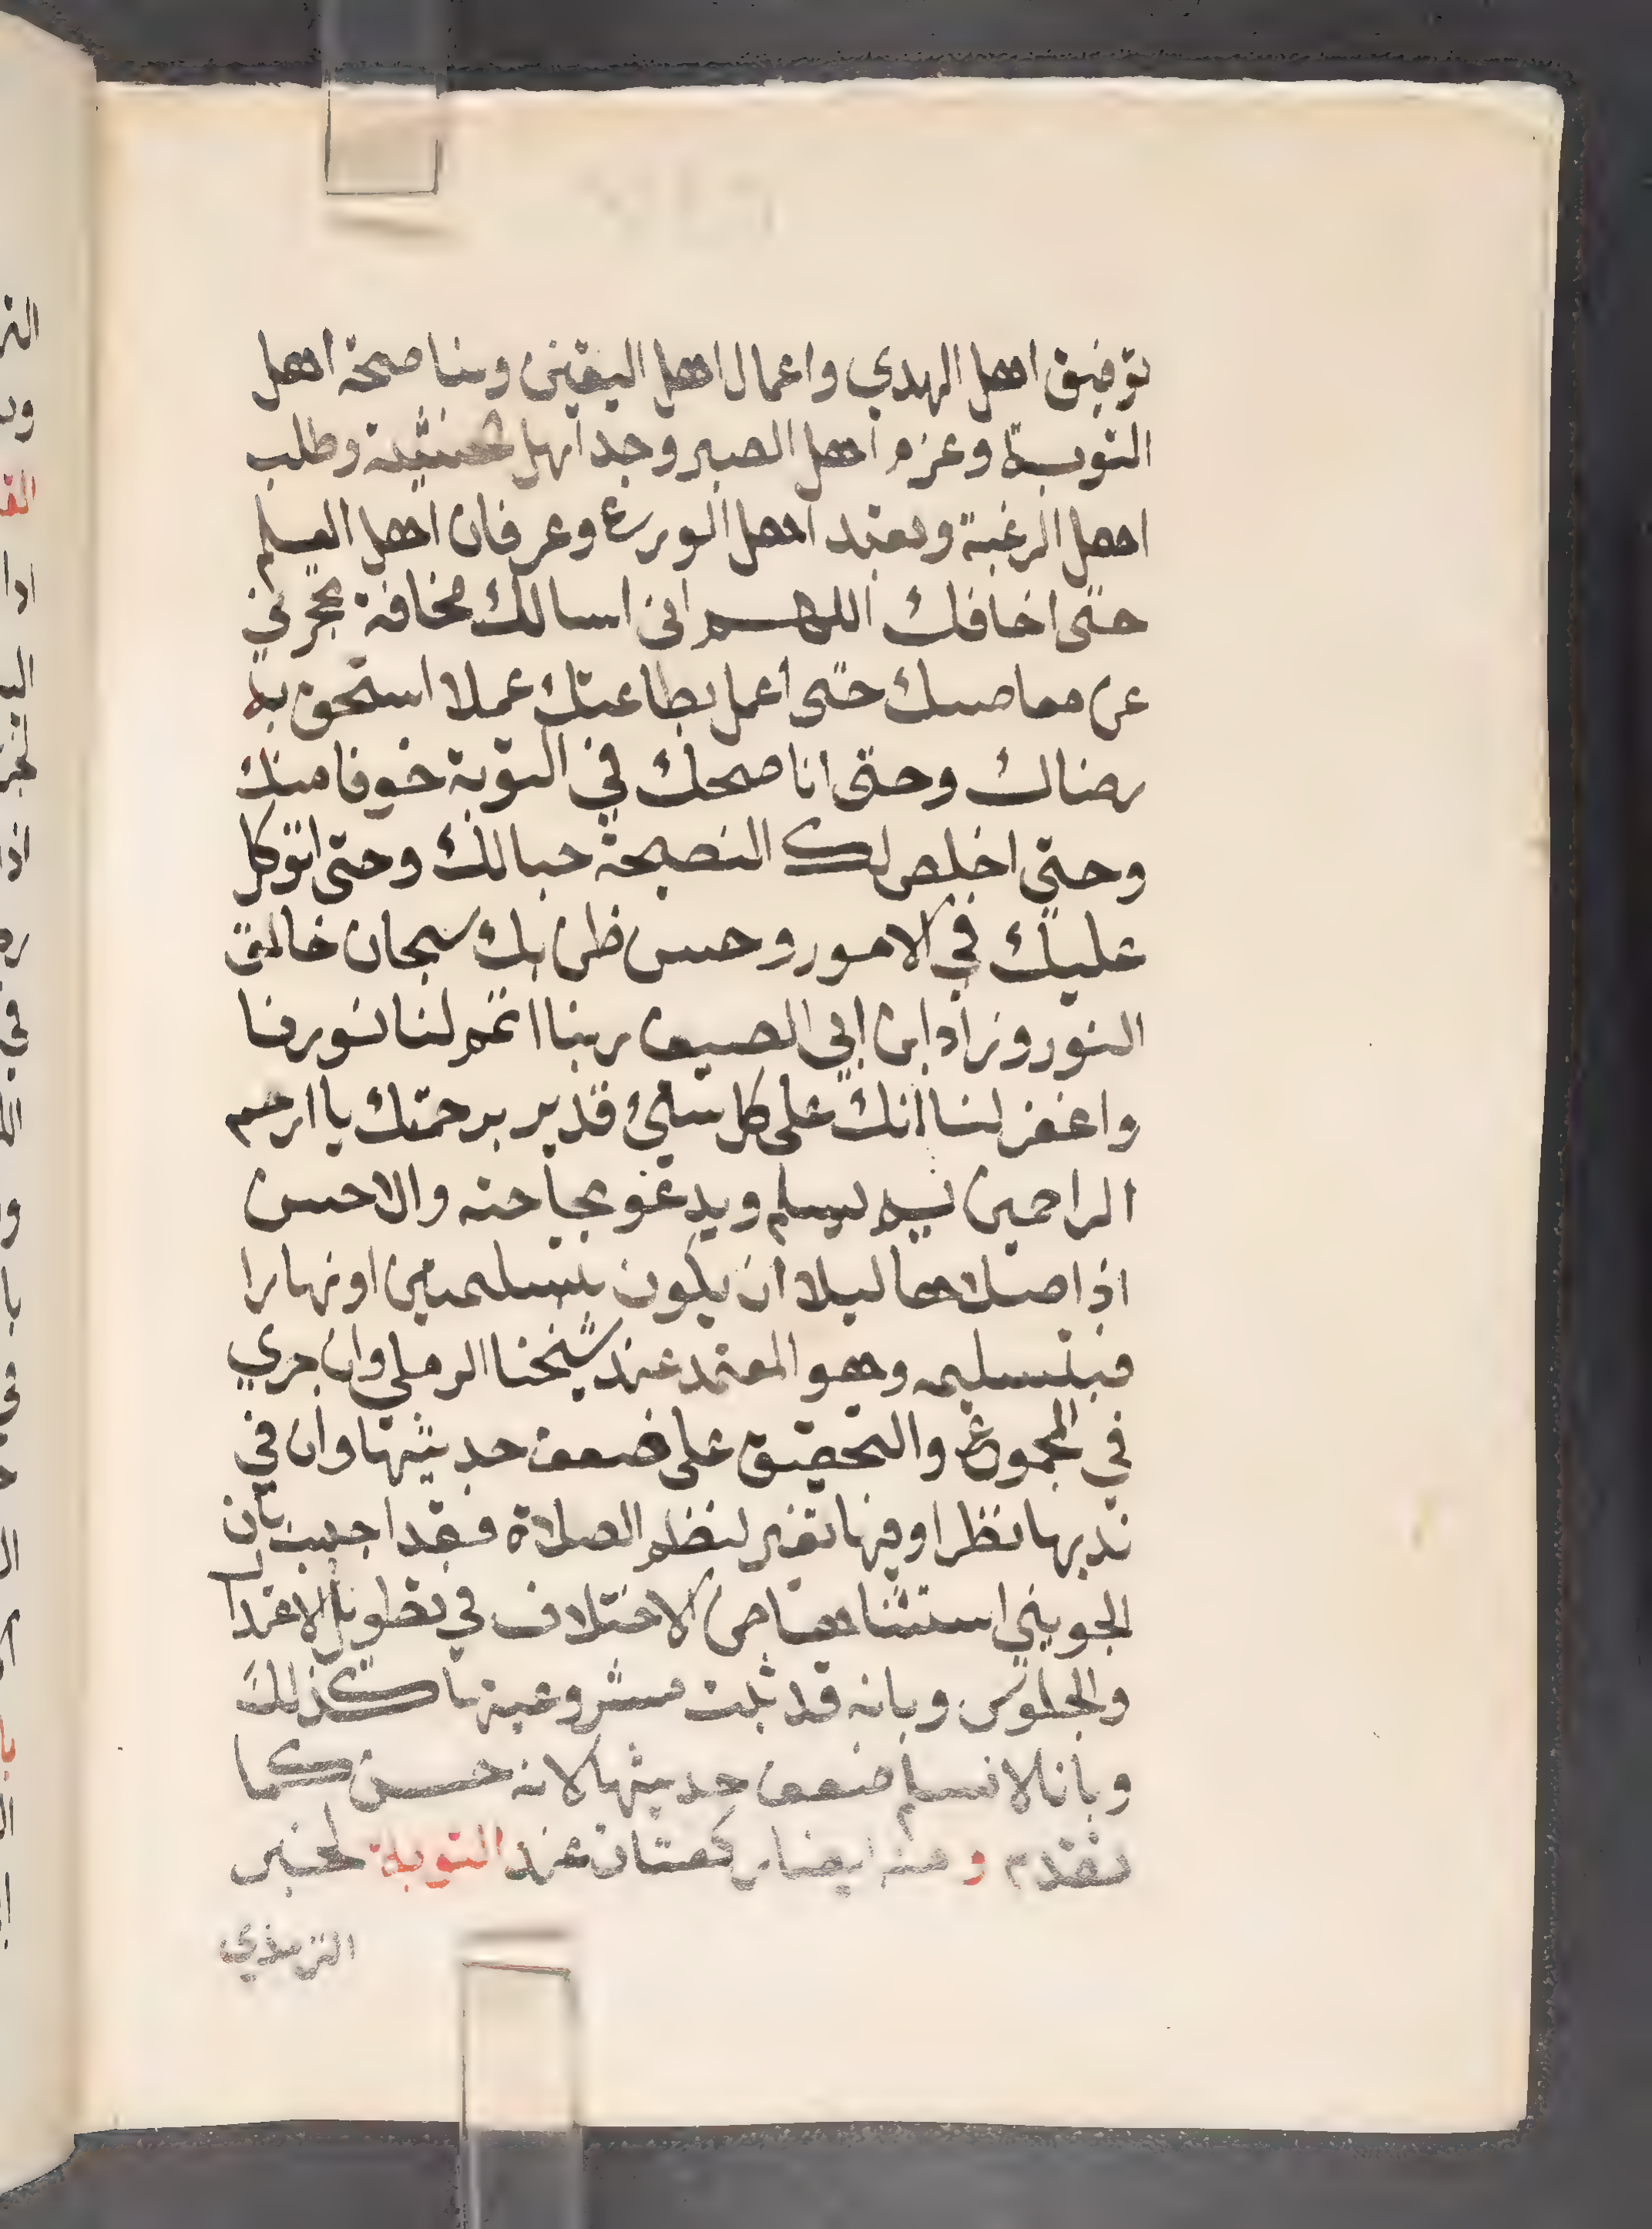 توفيق اهل الهدي واعمال اهل اليقين ومناصحة اهل
التوبة وعزم اهل الصبر وجد اهل الخشية وطلب
اهل الرغبة وتعبد اهل الورع وعرفان اهل العلم
حتى اخافك اللهم اني اسالك مخافة تحجزني
عن معاصيك حتى اعمل بطاعتك عملا استحق به
رضاك وحتى اناصحك في التوبة خوفا منك
وحتى اخلص لك النصيحة حبا لك وحتى اتوكل
عليك في الامور وحسن ظن بك سبحان خالق
النور وزاد ابن ابي الصيف ربنا اتمم لنا نورنا
واغفر لنا انك على كل شيء قدير برحمتك يا ارحم
الراحمين ثم يسلم ويدعو بحاجته والاحسن
اذا صلاها ليلا ان يكون بتسلمتين او نهارا
فبتسليمه وهو المعتمد عند شيخنا الرملي وان جري
في المجموع والتحقيق على ضعف حديثها وان في
ندبها نظرا وفيها تغير لنظم الصلاة فقد اجيب بان
الجويني استثناها من الاختلاف في تطويل الاعتدال
والجلوس وبانه قد ثبت مشروعيتها كذلك
وبانا لا نسلم ضعف حديثها لانه حسن كما
تقدم ومنه ايضا ركعتان عند التوبة لخبر
الترمذي